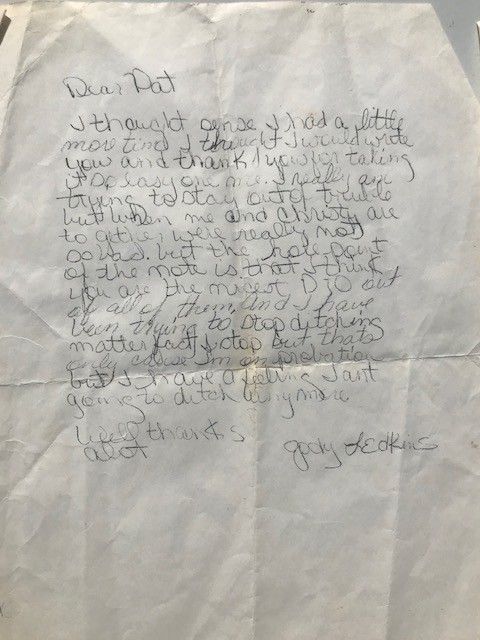 Dear Pat
I thought sense I had a little
more time I thought I would write
you and thank you for taking
it so easy one me. I really am
trying to stay out of trouble
but when me and Christy are
to gether were really not
so bad. but the hole point
of the note is that I think
you are the nicest D.T.O out
of all of them. And I have
been trying to stop ditching
matter fact I stop but thats
only cause I'm on probation
but I have a feeling I ant
going to ditch any more
Well thanks
alot
Jedkins